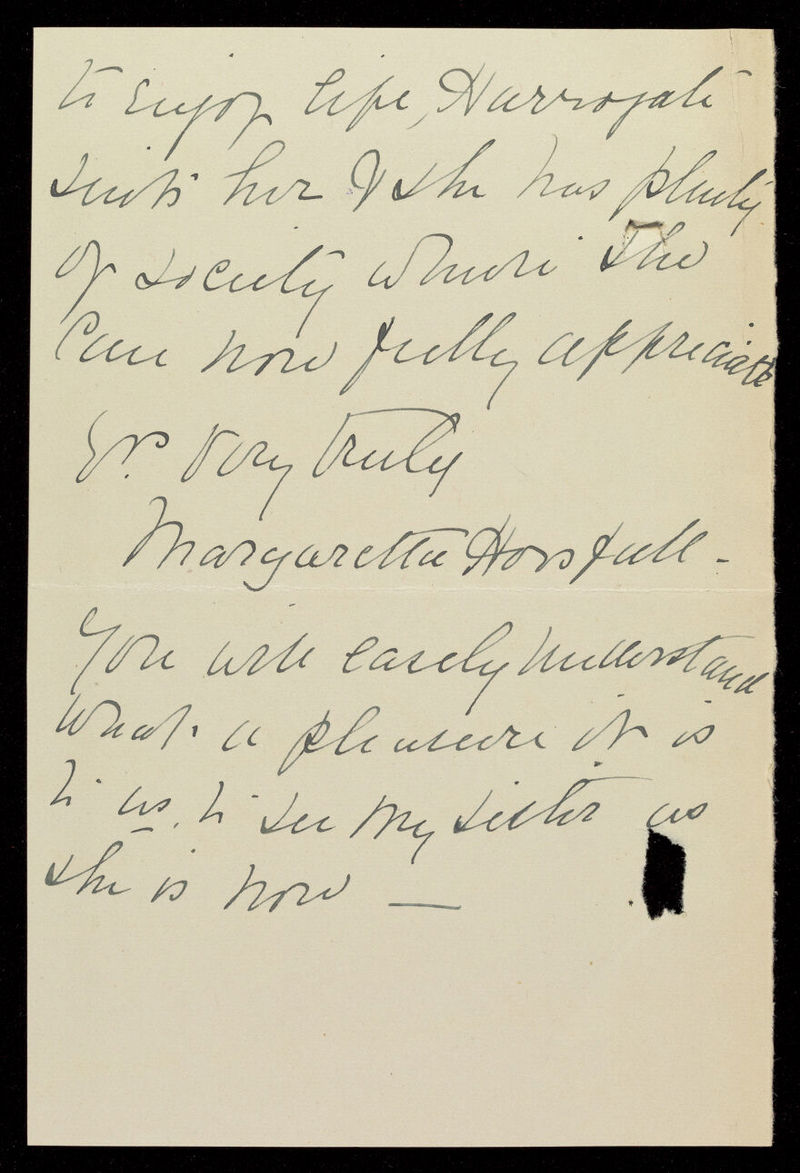 to enjoy life, Harrogate
suits her & she has plenty
of society which she
can now fully appreciate
Yrs. Very truly
Margaretta Horsfall -
You will easely understand
what a pleasure it is
to us, to see my sister as
she is now —